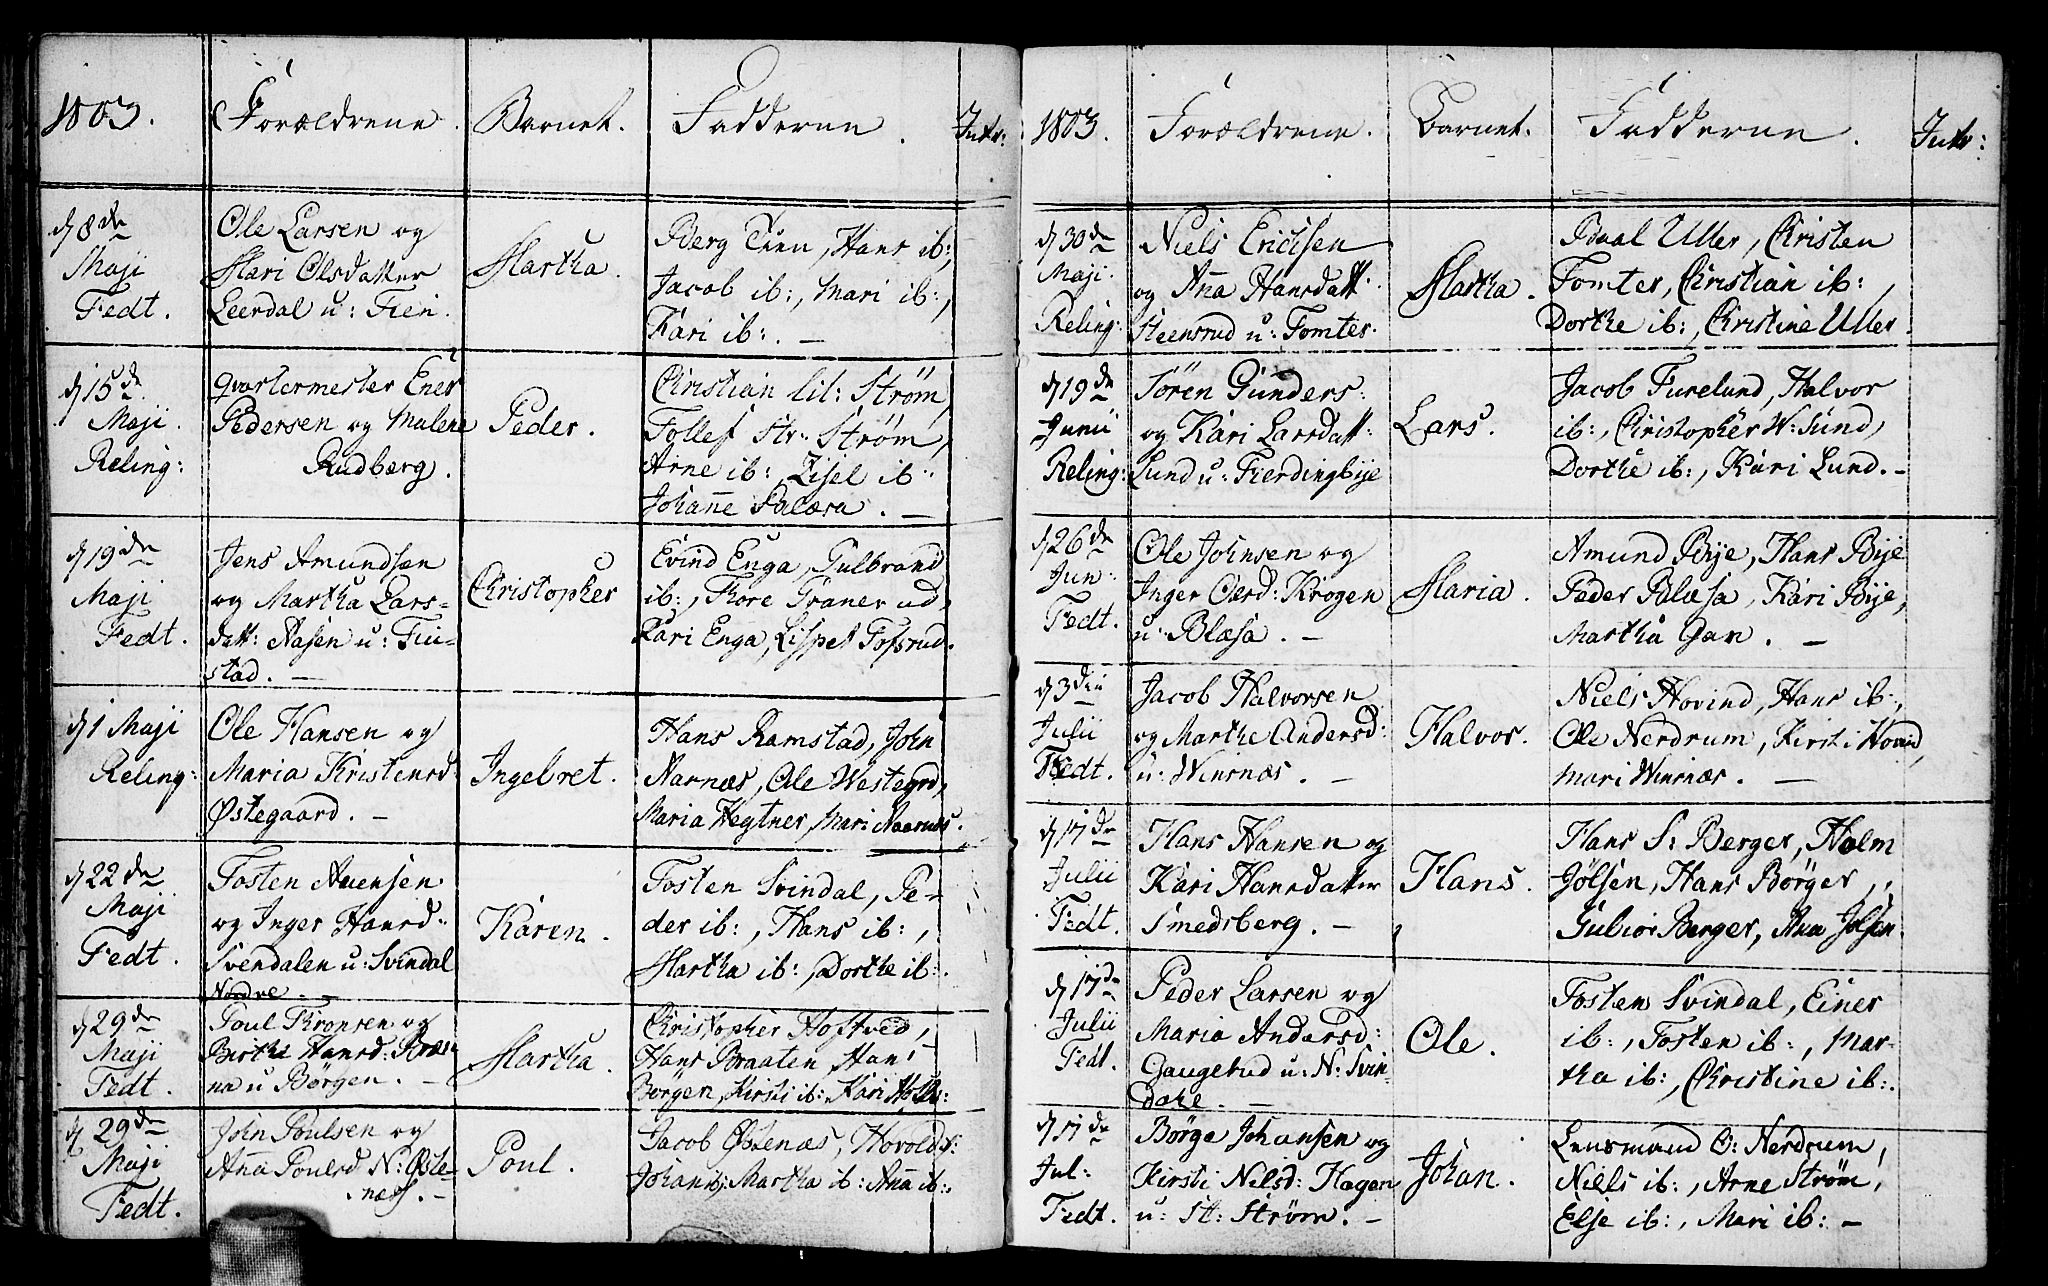 1803.
Forældrene.
Barnet.
Fadderne.
Intr:
d 8de
Maji
Fedt.
Ole Larsen og
Mari Olsdatter
Leerdal u: Tien.
Martha.
Berg Tien, Hans ib:,
Jacob ib:, Mari ib:,
Kari ib:. —
d 15de
Maji.
Reling:
qvartermester Ener
Pedersen og Malene
Rudberg.
Peder.
Christian lil: Strøm,
Tollef Str: Strøm,
Arne ib:, Lisel ib:
Johanne
d 19de
Maji
Fedt.
Jens Amundsen
og Martha Lars-
datt: Aasen u: Tiu-
stad. —
Christopher
Evind Enga, Gulbrand
ib:, Thore Tranerud,
Kari Enga, Lispet Tofsrud.
d 1 Maji
Reling:
Ole Hansen og
Maria Kristensd
Østegaard. —
Ingebret.
Hans Ramstad, John
Narnæs, Ole Westegrd,
Maria Hegtner, Mari Naarnæs.
d 22de
Maji
Fedt.
Tosten Auensen
og Inger Hansd:
Svendalen u: Svindal
Nordre. —
Karen.
Tosten Svindal, Pe-
der ib:, Hans ib:,
Martha ib:, Dorthe ib:.
d 29de
Maji
Fedt.
Poul Thronsen og
Birthe Hansd:
na u Børgen. —
Martha.
Christopher Hoftved,
Hans Braaten, Hans
Børgen, Kirsti ib: Kari
d 29de
Maji
Fedt.
John Poulsen og
Anna Poulsd N: Øste-
næss. —
Poul.
Jacob Østenæs, Hovold ib:
Johan ib: Martha ib: Anna ib:.
1803.
Forældrene.
Barnet.
Fadderne.
Intr:
d 30de
Maji.
Reling:
Niels Ericksen
og Anna Hansdatt:
Steensrud u: Tomter.
Martha.
Paal Uller, Christen
Tomter, Christian ib:,
Dorthe ib:, Christine Uller.
d 19de
Junii
Reling:
Søren Gunders:
og Kari Larsdatt:
Lund u: Fierdingbye
Lars.
Jacob Furelund, Halvor
ib:, Christopher W: Sund,
Dorthe ib:, Kari Lund. —
d 26de
Jun:
Fedt.
Ole Johnsen og
Inger Olesd: Krogen
u: Blæsa. —
Maria.
Amund Bye, Hans Bye
Peder Blæsa, Kari Bye,
Martha Gan. —
d 3die
Julii
Fedt.
Jacob Halvorsen
og Marthe Andersd:
u: Winsnæs. —
Halvor.
Niels Hovind, Hans ib:,
Ole Nerdrum, Kirsti Hovind,
Mari Winsnæs. —
d 17de
Julii
Fedt.
Hans Hansen og
Kari Hansdatter
Smedsberg. —
Hans.
Hans S: Berger, Holm
Jølsen, Hans Børger,
Gulior Berger, Ana Jølsen.
d 17de
Julii
Fedt.
Peder Larsen og
Maria Andersd:
Gaugerud u: N: Svin-
dahl. —
Ole.
Tosten Svindal, Einer
ib:, Tosten ib:, Mar-
tha ib:, Christine ib:.
d 17de
Jul:
Fedt.
Børge Johansen og
Kirsti Nilsd: Hagen
u: St: Strøm. —
Johan.
Lensmand O: Nerdrum,
Niels ib:, Arne Strøm,
Else ib:, Mari ib: —